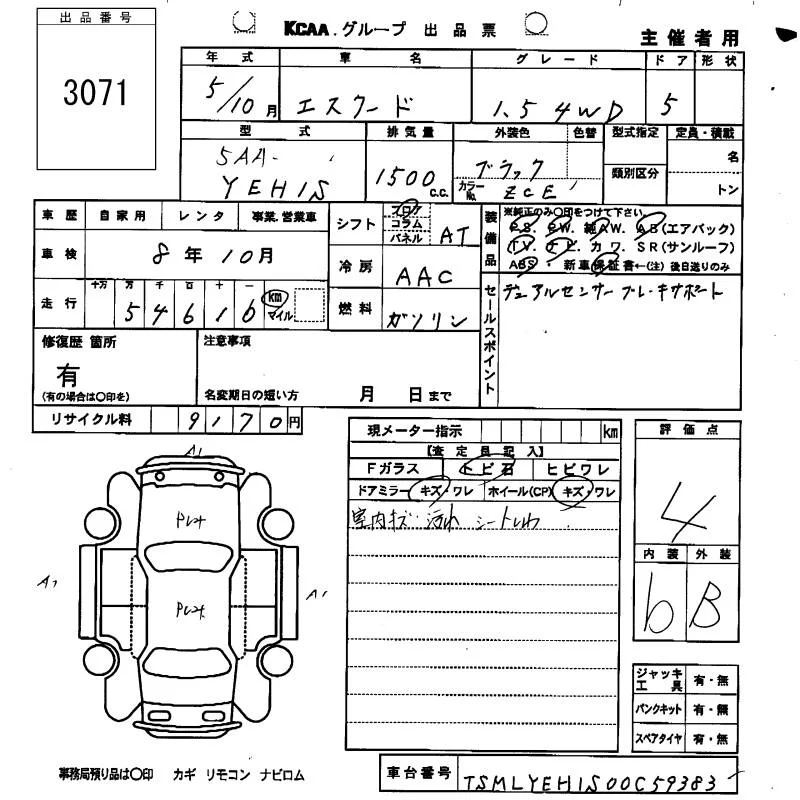 出品番号
3071
KCAA.グループ 出品票
主催者用
年式 車名 グレード ドア 形状
5/10月 エスクード 1.5 4WD 5
型式 排気量 外装色 色替 型式指定 定員・積載
5AA-
YEH1S
1500 c.c.
ブラック
カラーNo. ZCE
類別区分
名
トン
車歴 自家用 レンタ 事業.営業車
車検 8年10月
走行 十万 万 千 百 十 一
5 4 6 1 6 km マイル
シフト フロア コラム パネル AT
冷房 AAC
燃料 ガソリン
装備品
※純正のみ〇印をつけて下さい
P.S. P.W. 純A.W. A.B(エアバック)
T.V. ナビ カワ. S.R(サンルーフ)
ABS・新車保証書←(注)後日送りのみ
セールスポイント
デュアルセンサーブレーキサポート
修復歴 箇所
有
(有の場合は〇印を)
注意事項
名変期日の短い方 月 日まで
リサイクル料 9170円
現メーター指示 km
【査定員記入】
Fガラス トビ石 ヒビワレ
ドアミラー キズ・ワレ ホイール(CP) キズ・ワレ
室内キズ 汚れ シートしわ
評価点
4
内装 外装
b B
A1
A1
A1
ジャッキ工具 有・無
パンクキット 有・無
スペアタイヤ 有・無
事務局預り品は〇印 カギ リモコン ナビロム
車台番号 TSMLYEH1S00C59383